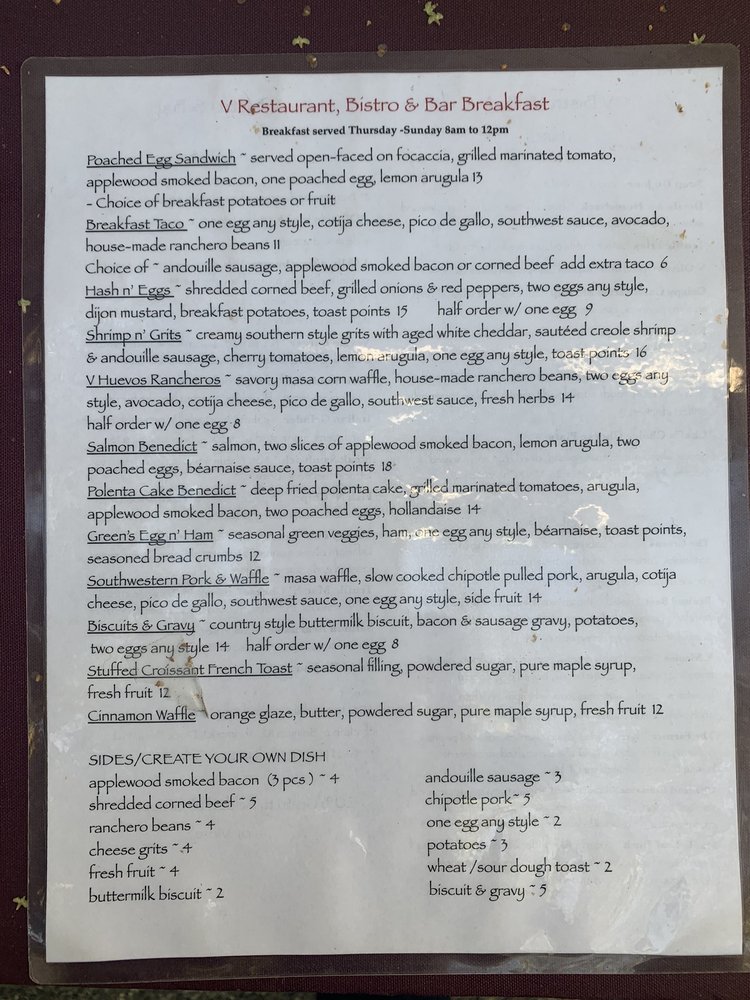 V Restaurant, Bistro & Bar Breakfast
Breakfast served Thursday -Sunday 8am to 12pm
Poached Egg Sandwich ~ served open-faced on focaccia, grilled marinated tomato,
applewood smoked bacon, one poached egg, lemon arugula 13
- Choice of breakfast potatoes or fruit
Breakfast Taco ~ one egg any style, cotija cheese, pico de gallo, southwest sauce, avocado,
house-made ranchero beans 11
Choice of ~ andouille sausage, applewood smoked bacon or corned beef add extra taco 6
Hash n' Eggs ~ shredded corned beef, grilled onions & red peppers, two eggs any style,
dijon mustard, breakfast potatoes, toast points 15 half order w/ one egg 9
Shrimp n' Grits ~ creamy southern style grits with aged white cheddar, sautéed creole shrimp
& andouille sausage, cherry tomatoes, lemon arugula, one egg any style, toast points 16
V Huevos Rancheros ~ savory masa corn waffle, house-made ranchero beans, two eggs any
style, avocado, cotija cheese, pico de gallo, southwest sauce, fresh herbs 14
half order w/ one egg 8
Salmon Benedict ~ salmon, two slices of applewood smoked bacon, lemon arugula, two
poached eggs, béarnaise sauce, toast points 18
Polenta Cake Benedict ~ deep fried polenta cake, grilled marinated tomatoes, arugula,
applewood smoked bacon, two poached eggs, hollandaise 14
Green's Egg n' Ham ~ seasonal green veggies, ham, one egg any style, béarnaise, toast points,
seasoned bread crumbs 12
Southwestern Pork & Waffle ~ masa waffle, slow cooked chipotle pulled pork, arugula, cotija
cheese, pico de gallo, southwest sauce, one egg any style, side fruit 14
Biscuits & Gravy ~ country style buttermilk biscuit, bacon & sausage gravy, potatoes,
two eggs any style 14 half order w/ one egg 8
Stuffed Croissant French Toast ~ seasonal filling, powdered sugar, pure maple syrup,
fresh fruit 12
Cinnamon Waffle orange glaze, butter, powdered sugar, pure maple syrup, fresh fruit 12
SIDES/CREATE YOUR OWN DISH
applewood smoked bacon (3 pcs ) ~ 4
shredded corned beef ~ 5
ranchero beans ~ 4
cheese grits ~ 4
fresh fruit ~ 4
buttermilk biscuit ~ 2
andouille sausage ~ 3
chipotle pork ~ 5
one egg any style ~ 2
potatoes ~ 3
wheat /sour dough toast ~ 2
biscuit & gravy ~ 5